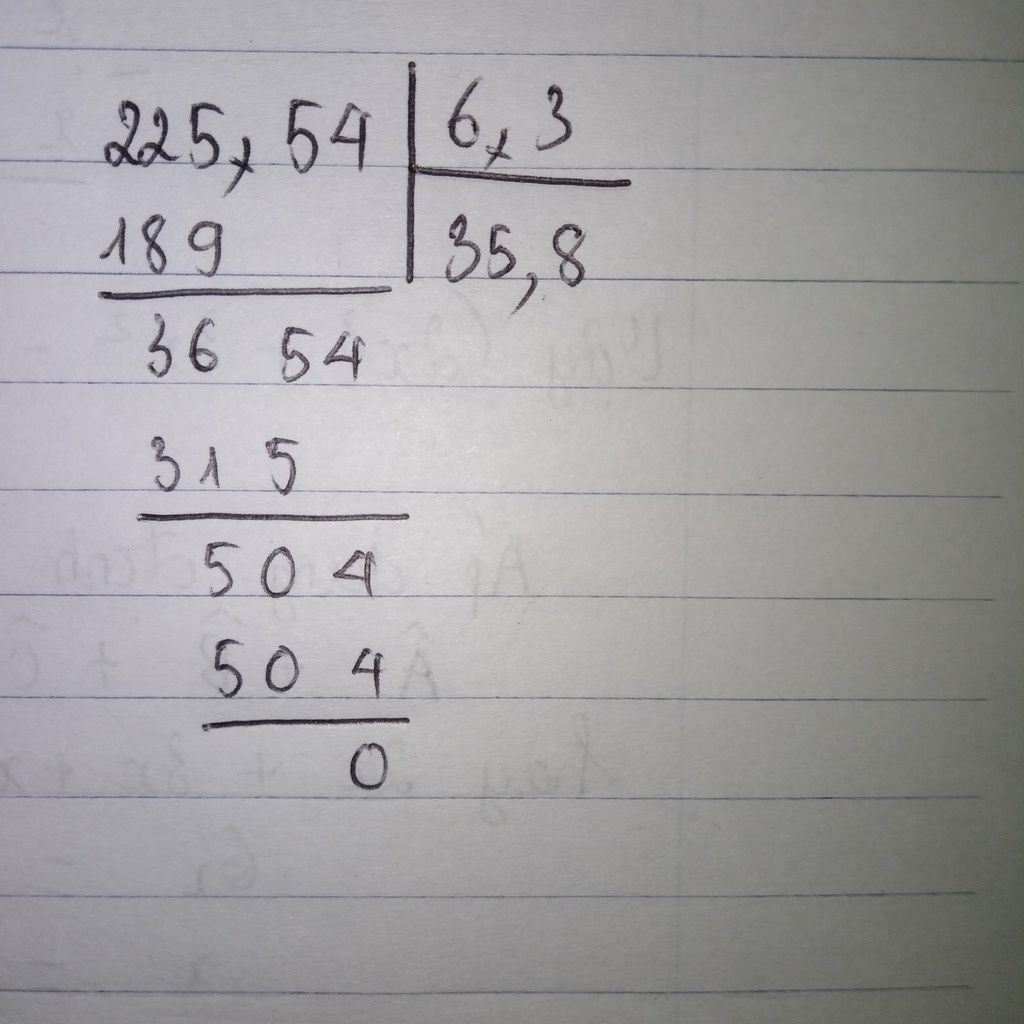 225, 54 | 6, 3
189 | 35,8
36 54
31 5
50 4
50 4
0